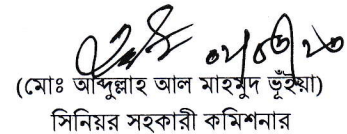 (মোঃ আব্দুল্লাহ আল মাহমুদ ভূঁইয়া)
সিনিয়র সহকারী কমিশনার